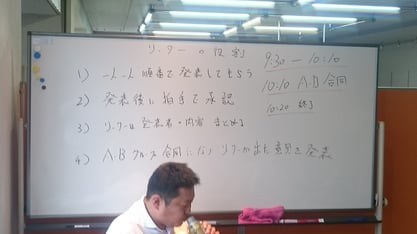 リーダーの役割
1) 一人一人順番で発表してもらう
2) 発表後に拍手で承認
3) リーダーは発表者・内容まとめる
4) A・Bグループ合同になりリーダーが出た意見を発表
9:30 ― 10:10
10:10 A・B合同
10:20 終了